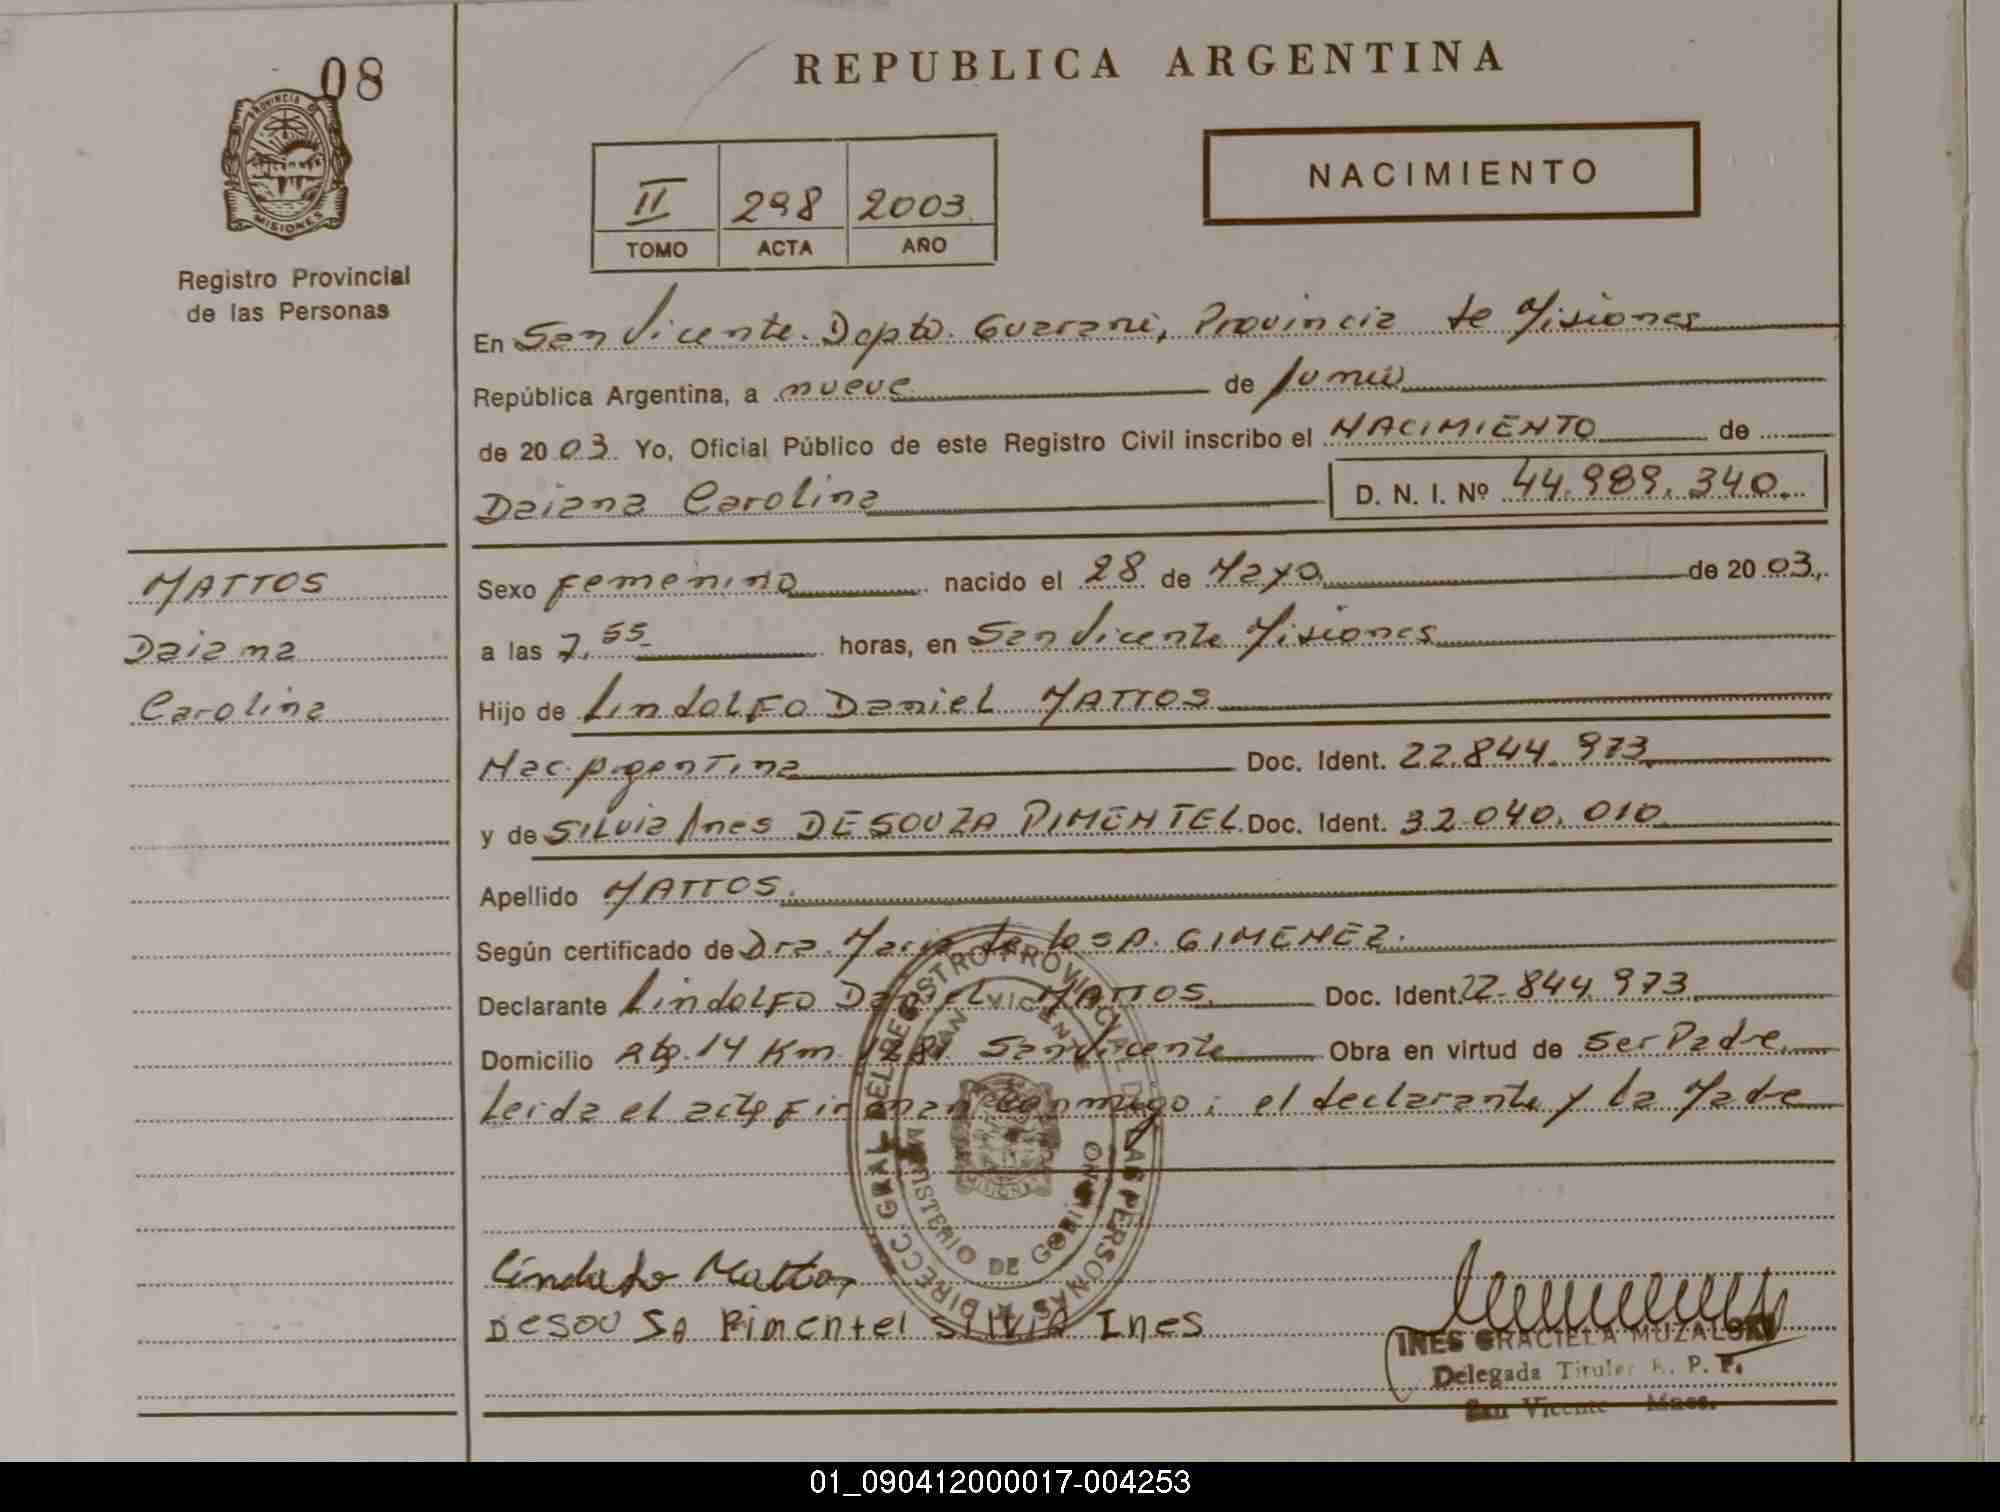 08
REPUBLICA ARGENTINA
PROVINCIA DE
MISIONES
Registro Provincial
de las Personas
NACIMIENTO
II 298 2003
TOMO ACTA AÑO
En San Vicente. Dpto. Guarani, Provincia de Misiones
República Argentina, a nueve de Junio
de 2003. Yo, Oficial Público de este Registro Civil inscribo el NACIMIENTO de
Daiana Carolina D. N. I. Nº 44.989.340.
MATTOS
Daiana
Carolina
Sexo femenino nacido el 28 de Mayo de 2003.
a las 7,55 horas, en San Vicente Misiones
Hijo de Lindolfo Daniel MATTOS
Nac. Argentina Doc. Ident. 22.844.973
y de Silvia Ines DESOUZA PIMENTEL Doc. Ident. 32.040.010
Apellido MATTOS.
Según certificado de Dra. Maria de los A. GIMENEZ.
Declarante Lindolfo Daniel MATTOS. Doc. Ident. 22.844.973
Domicilio 14 Km. San Vicente Obra en virtud de Ser Padre
Leida el acta Firman conmigo; el declarante y la Madre
DIRECC. GRAL DEL REGISTRO PROVINCIAL DE LAS PERSONAS
SAN VICENTE
MINISTERIO DE GOBIERNO
MISIONES
Lindolfo Mattos
DESOUSA Pimentel SILVIA Ines
INES GRACIELA MUZALSKI
Delegada Titular R. P. P.
San Vicente Mnes.
01_090412000017-004253